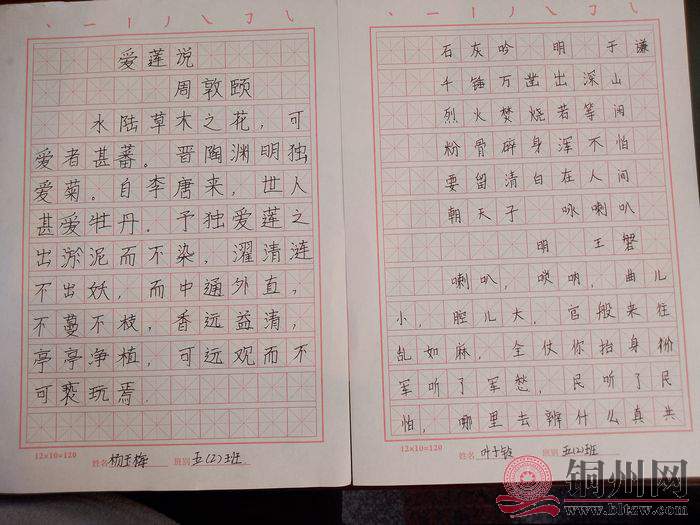 爱莲说
周敦颐
水陆草木之花，可
爱者甚蕃。晋陶渊明独
爱菊。自李唐来，世人
甚爱牡丹。予独爱莲之
出淤泥而不染，濯清涟
不出妖，而中通外直，
不蔓不枝，香远益清，
亭亭净植，可远观而不
可亵玩焉。
12×10=120 姓名 杨玉梅 班别 五(2)班
石灰吟 明 于谦
千锤万凿出深山
烈火焚烧若等闲
粉骨碎身浑不怕
要留清白在人间
朝天子 咏喇叭
明 王磐
喇叭，唢呐，曲儿
小，腔儿大，官般来往
乱如麻，全仗你抬身价
军听了军愁，民听了民
怕，哪里去辨什么真共
12×10=120 姓名 班别 五(2)班
铜州网
www.bltzw.com